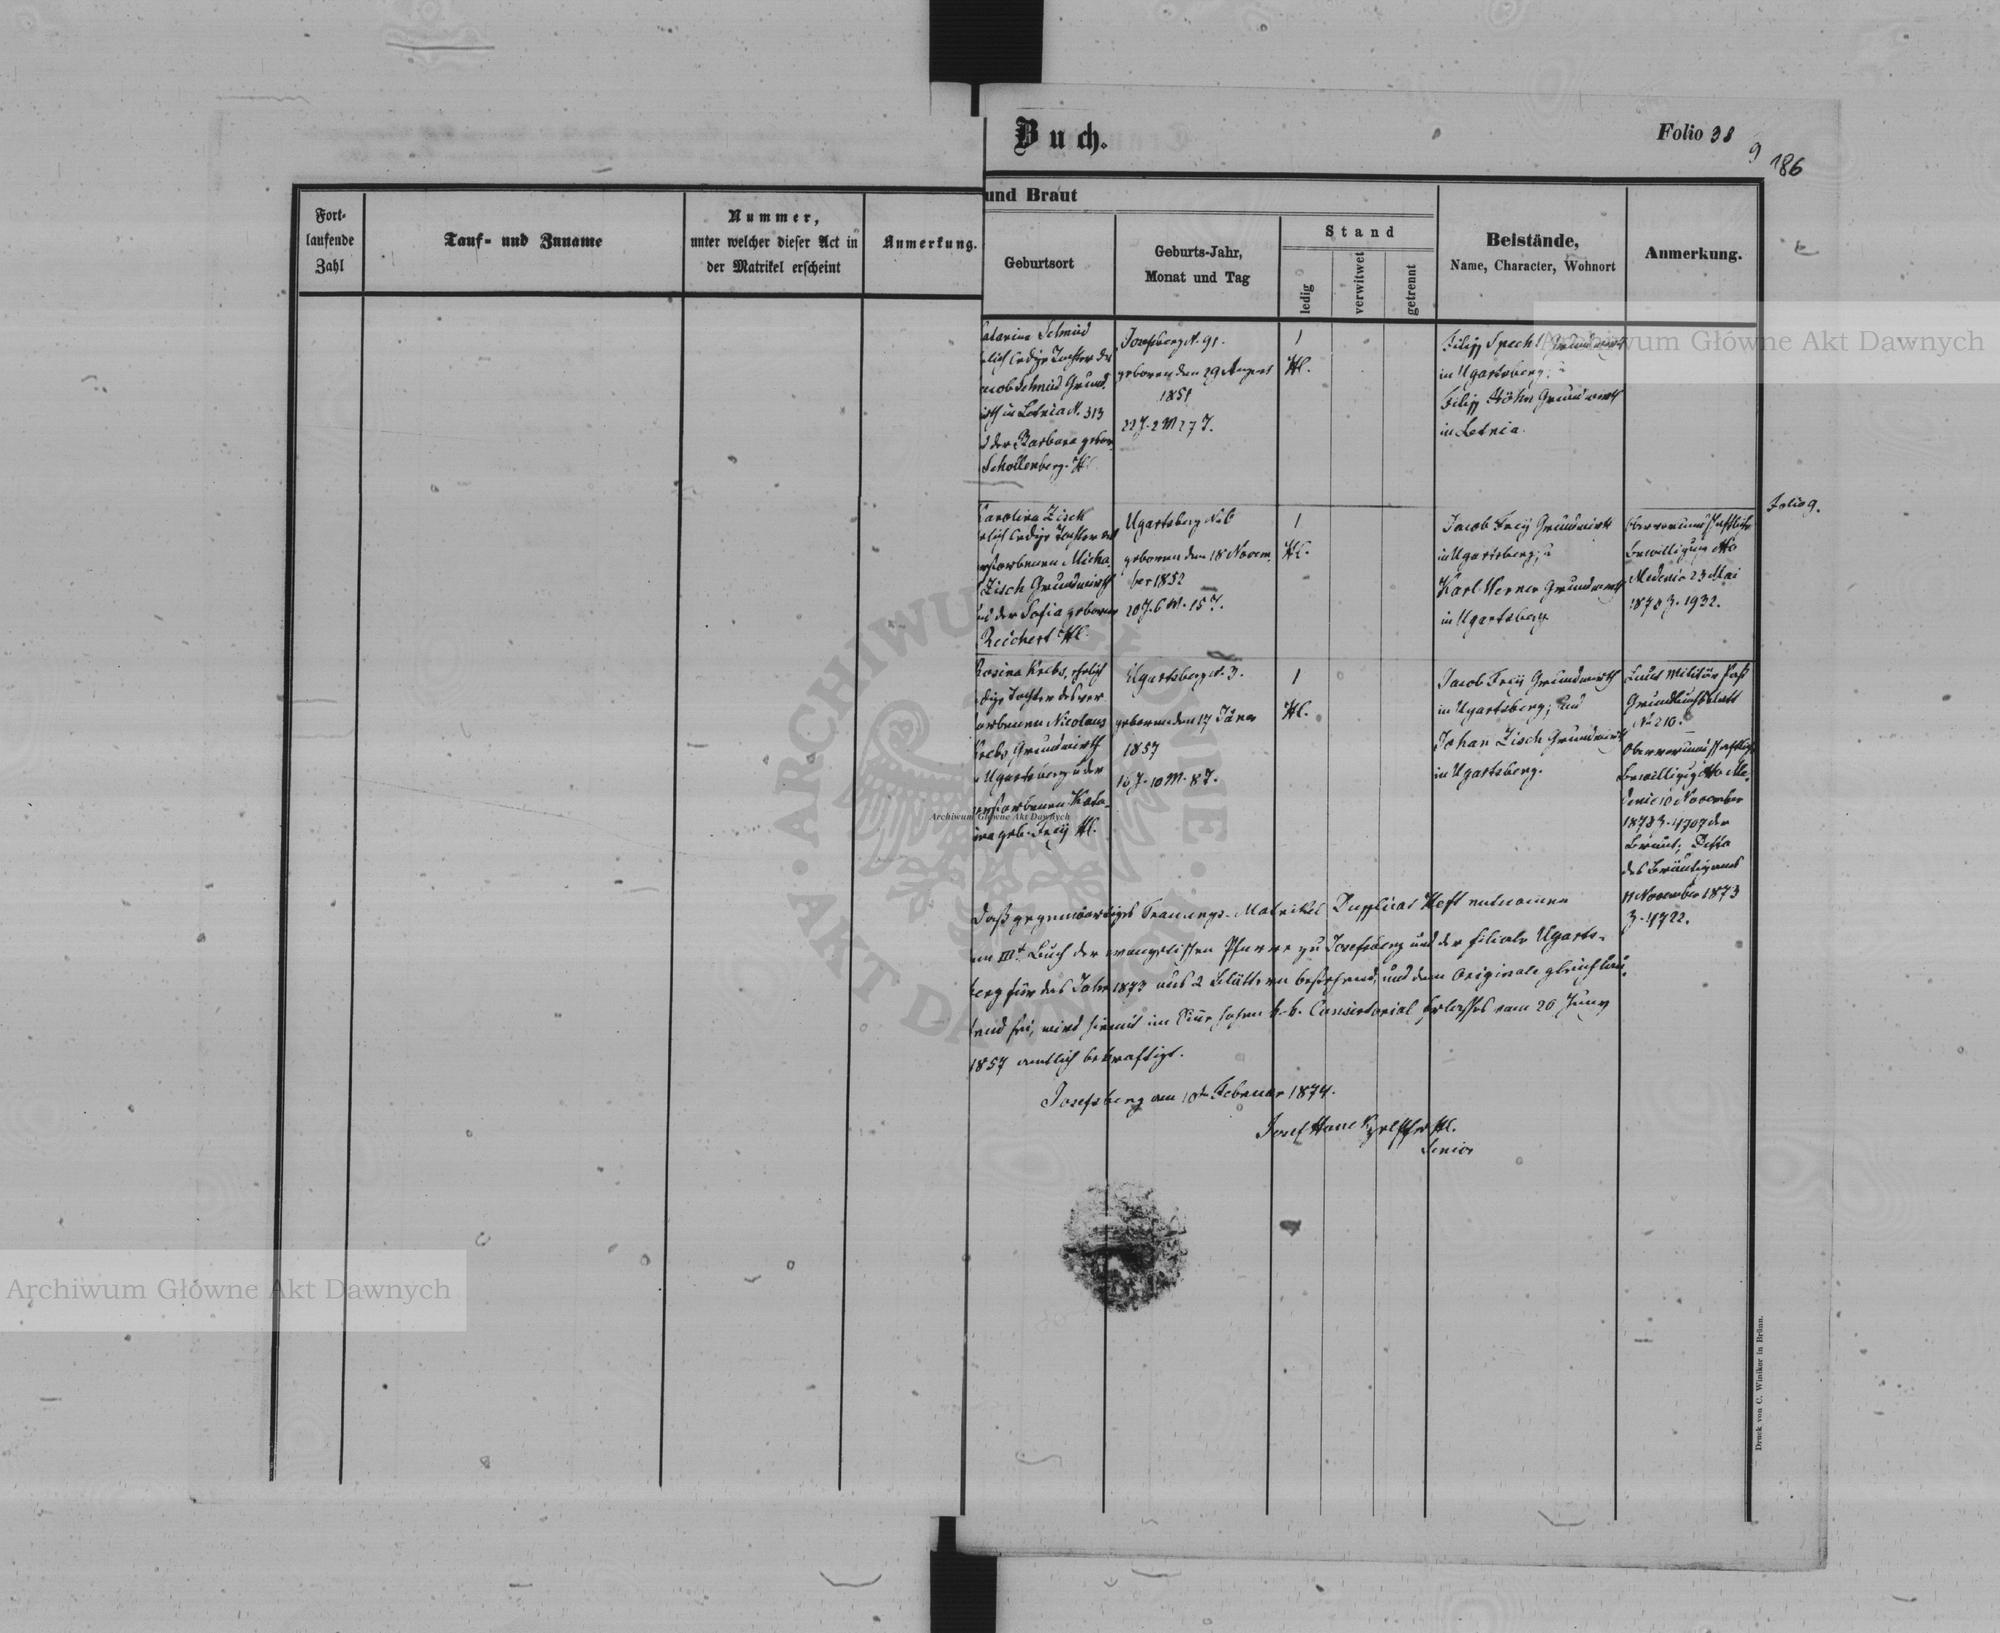 Buch.
Folio 38
9
186
Fort-
laufende
Zahl
Tauf- und Zuname
Nummer,
unter welcher dieser Act in
der Matrikel erscheint
Anmerkung.
und Braut
Geburtsort
Geburts-Jahr,
Monat und Tag
Stand
ledig
verwitwet
getrennt
Beistände,
Name, Character, Wohnort
Anmerkung.
atarina Schmid
lich ledige Tochter des
acob Schmid Grund
in Letnia N. 313
d der Barbara gebor
Schollenberg. Hl.
Josefsberg N. 91.
geboren den 29 August
1851
22 J. 2 M 27 T.
1
Hl.
Filipp Specht Grundwirth
in Ugartsberg; u
Filipp Höhn Grundwirth
in Letnia.
Folio 9.
Karolina Zisch
lich ledige Tochter des
erstorbenen Micha
Zisch Grundwirth
nd der Sofia geboren
Reichert Hl.
Ugartsberg No 6
geboren den 18 Novem
ber 1852
20 J. 6 M. 15 T.
1
Hl.
Jacob Frey Grundwirth
in Ugartsberg; u
Karl Werner Grundwirth
in Ugartsberg
Obervormundschaftliche
Bewilligung dto
Medenic 23 Mai
1873 Z. 1932.
Rosina Krebs, ehelich
edige Tochter des ver
torbenen Nicolaus
Krebs Grundwirth
Ugartsberg u der
verstorbenen Kata-
ina geb. Frey Hl.
Ugartsberg N. 3.
geboren den 17 Jäner
1857
16 J. 10 M. 8 T.
1
Hl.
Jacob Frey Grundwirth
in Ugartsberg; und
Johan Zisch Grundwirth
in Ugartsberg.
Laut Militär Paß
Grundbuchsblatt
No 210.
Obervormundschaftliche
Bewilligug dto Me-
denic 10 November
1873 Z. 4707 der
Braut; Detto
des Bräutigams
11 November 1873
Z. 4722.
Daß gegenwärtiges Trauungs-Matrikel Duplicat Heft entnomen
im IIIt Buch der evangelischen Pfarre zu Josefsberg und der Filiale Ugarts-
berg für das Jahr 1873 aus 2 Blättern bestehend, und dem Originale gleichlau-
tend sei, wird hiemit im hohen k. k. Consistorial Erlasses vom 20 Juny
1857 amtlich bekräftigt.
Josefsberg am 10ten Februar 1874.
Josef Hl.
Senior
Druck von C. Winiker in Brünn.
Archiwum Główne Akt Dawnych
Archiwum Główne Akt Dawnych
Archiwum Główne Akt Dawnych
ARCHIWUM GŁÓWNE
AKT DAWNYCH